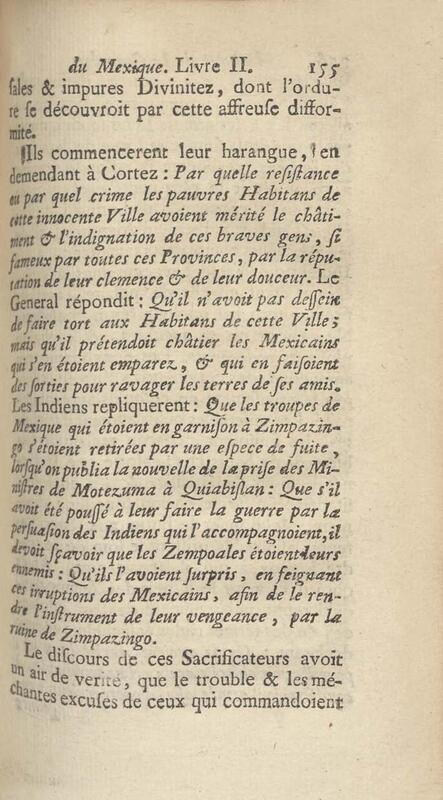 du Mexique. Livre II. 155
sales & impures Divinitez, dont l'ordu-
re se découvroit par cette affreuse diffor-
mité.
Ils commencerent leur harangue, en
demendant à Cortez : Par quelle resistance
ou par quel crime les pauvres Habitans de
cette innocente Ville avoient mérité le châti-
ment & l'indignation de ces braves gens, si
fameux par toutes ces Provinces, par la répu-
tation de leur clemence & de leur douceur. Le
General répondit : Qu'il n'avoit pas dessein
de faire tort aux Habitans de cette Ville;
mais qu'il prétendoit châtier les Mexicains
qui s'en étoient emparez, & qui en faisoient
des sorties pour ravager les terres de ses amis.
Les Indiens repliquerent : Que les troupes de
Mexique qui étoient en garnison à Zimpazin-
go s'étoient retirées par une espece de fuite,
lorsqu'on publia la nouvelle de la prise des Mi-
nistres de Motezuma à Quiabislan : Que s'il
avoit été poussé à leur faire la guerre par la
persuasion des Indiens qui l'accompagnoient, il
devoit sçavoir que les Zempoales étoient leurs
ennemis : Qu'ils l'avoient surpris, en feignant
ces irruptions des Mexicains, afin de le ren-
dre l'instrument de leur vengeance, par la
ruine de Zimpazingo.
Le discours de ces Sacrificateurs avoit
un air de verité, que le trouble & les mé-
chantes excuses de ceux qui commandoient